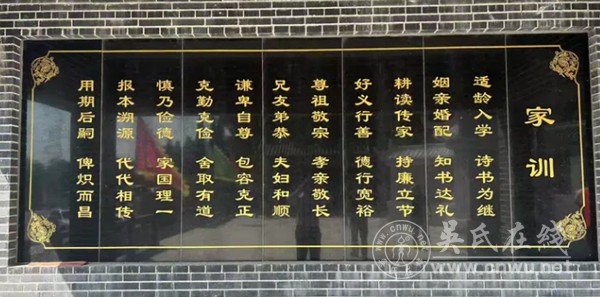 家训
适龄入学 诗书为继
姻亲婚配 知书达礼
耕读传家 持廉立节
好义行善 德行宽裕
尊祖敬宗 孝亲敬长
兄友弟恭 夫妇和顺
谦卑自尊 包容克正
克勤克俭 舍取有道
慎乃俭德 家国理一
报本溯源 代代相传
用期后嗣 俾炽而昌
吴氏在线
www.cnwu.net